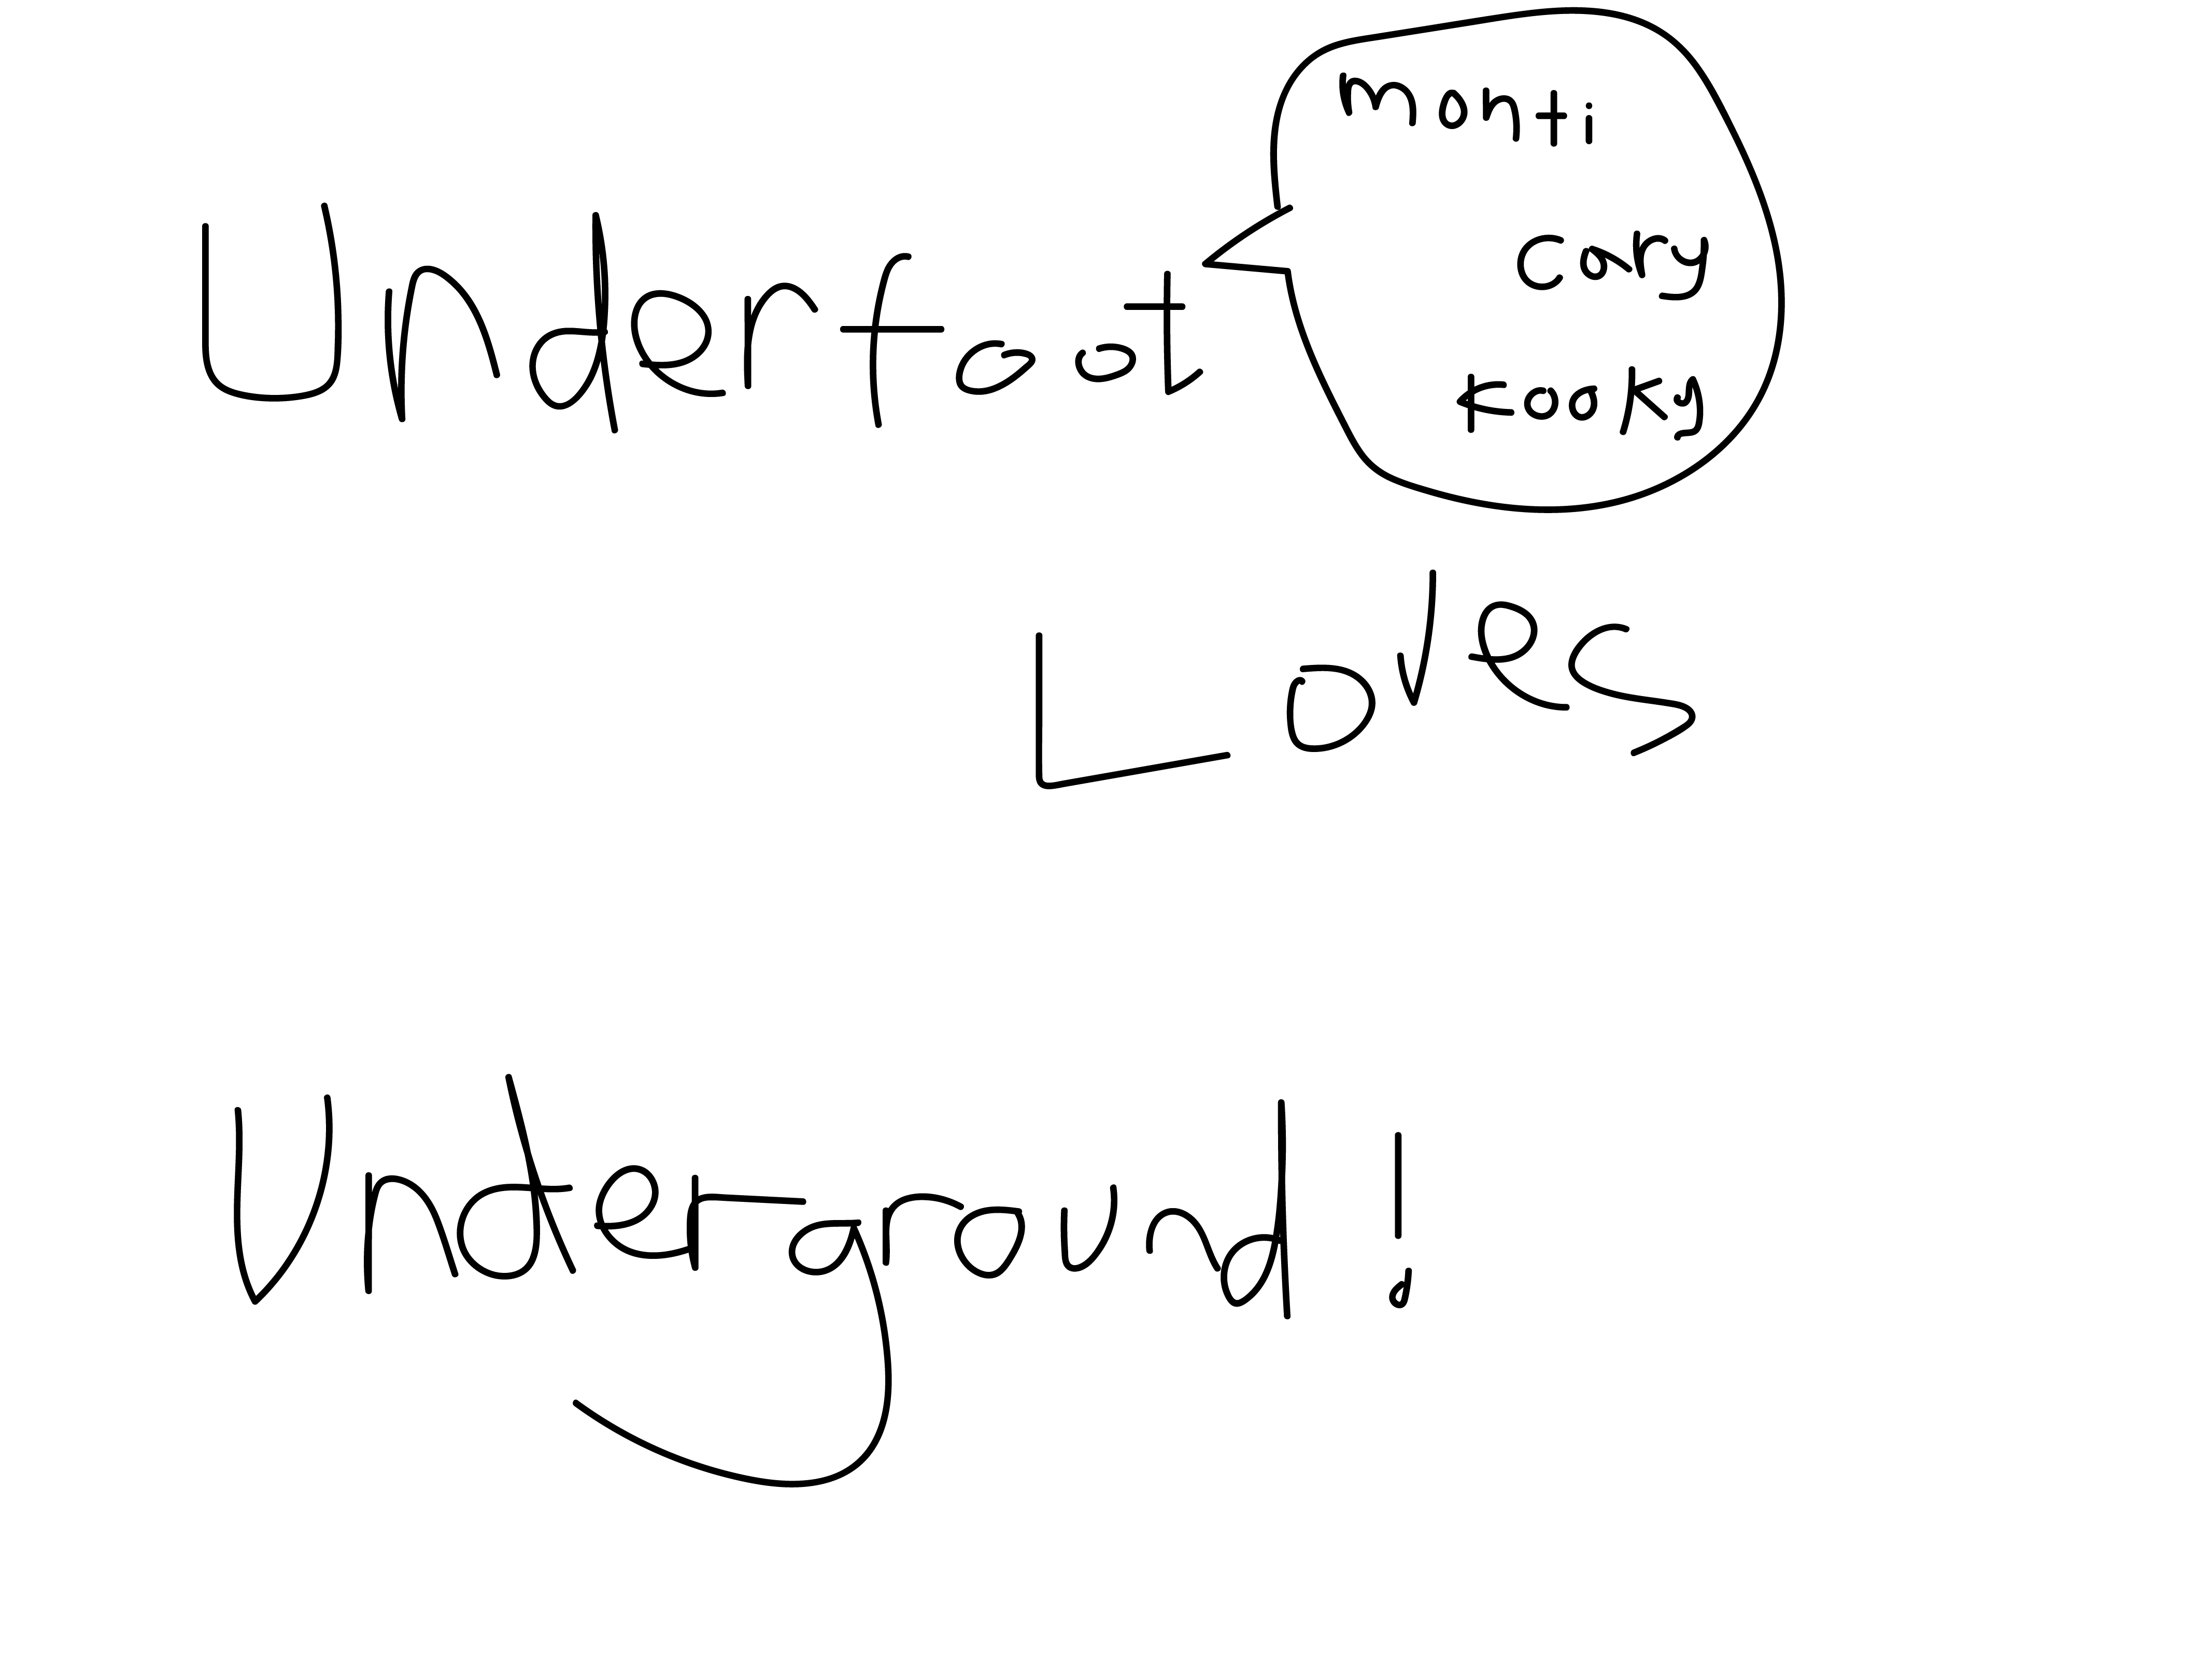 Underfoot
monti
cary
kooky
Loves
Underground!